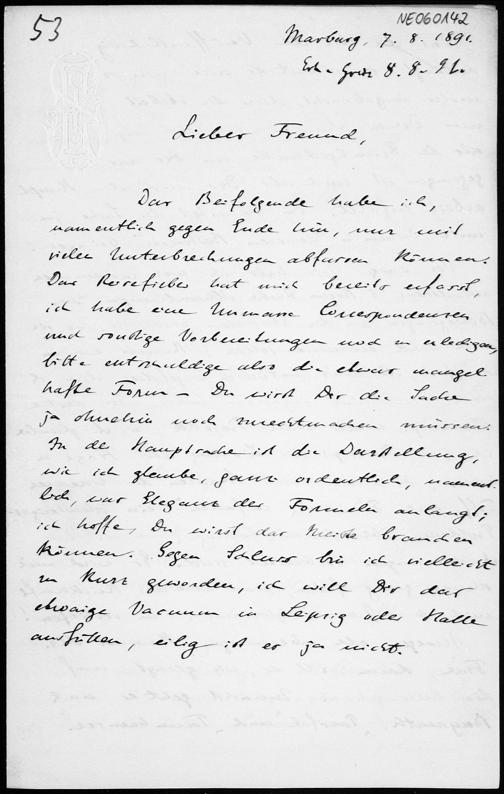 53
NE060142
Marburg, 7. 8. 1891.
8. 8. 91.
Lieber Freund,
Das Beifolgende habe ich,
namentlich gegen Ende hin, nur mit
vielen Unterbrechungen abfassen können.
Das Reisefieber hat mich bereits erfasst,
ich habe eine Unmasse Correspondenzen
und sonstige Vorbereitungen noch zu erledigen,
bitte entschuldige also die etwas mangel
hafte Form – Du wirst Dir die Sache
ja ohnehin noch zurechtmachen müssen.
In der Hauptsache ist die Darstellung,
wie ich glaube, ganz ordentlich, nament
lich, was Eleganz der Formeln anlangt;
ich hoffe, Du wirst das Meiste brauchen
können. Gegen Schluss bin ich vielleicht
zu kurz geworden, ich will Dir das
etwaige Vacuum in Leipzig oder Halle
ausfüllen, eilig ist es ja nicht.